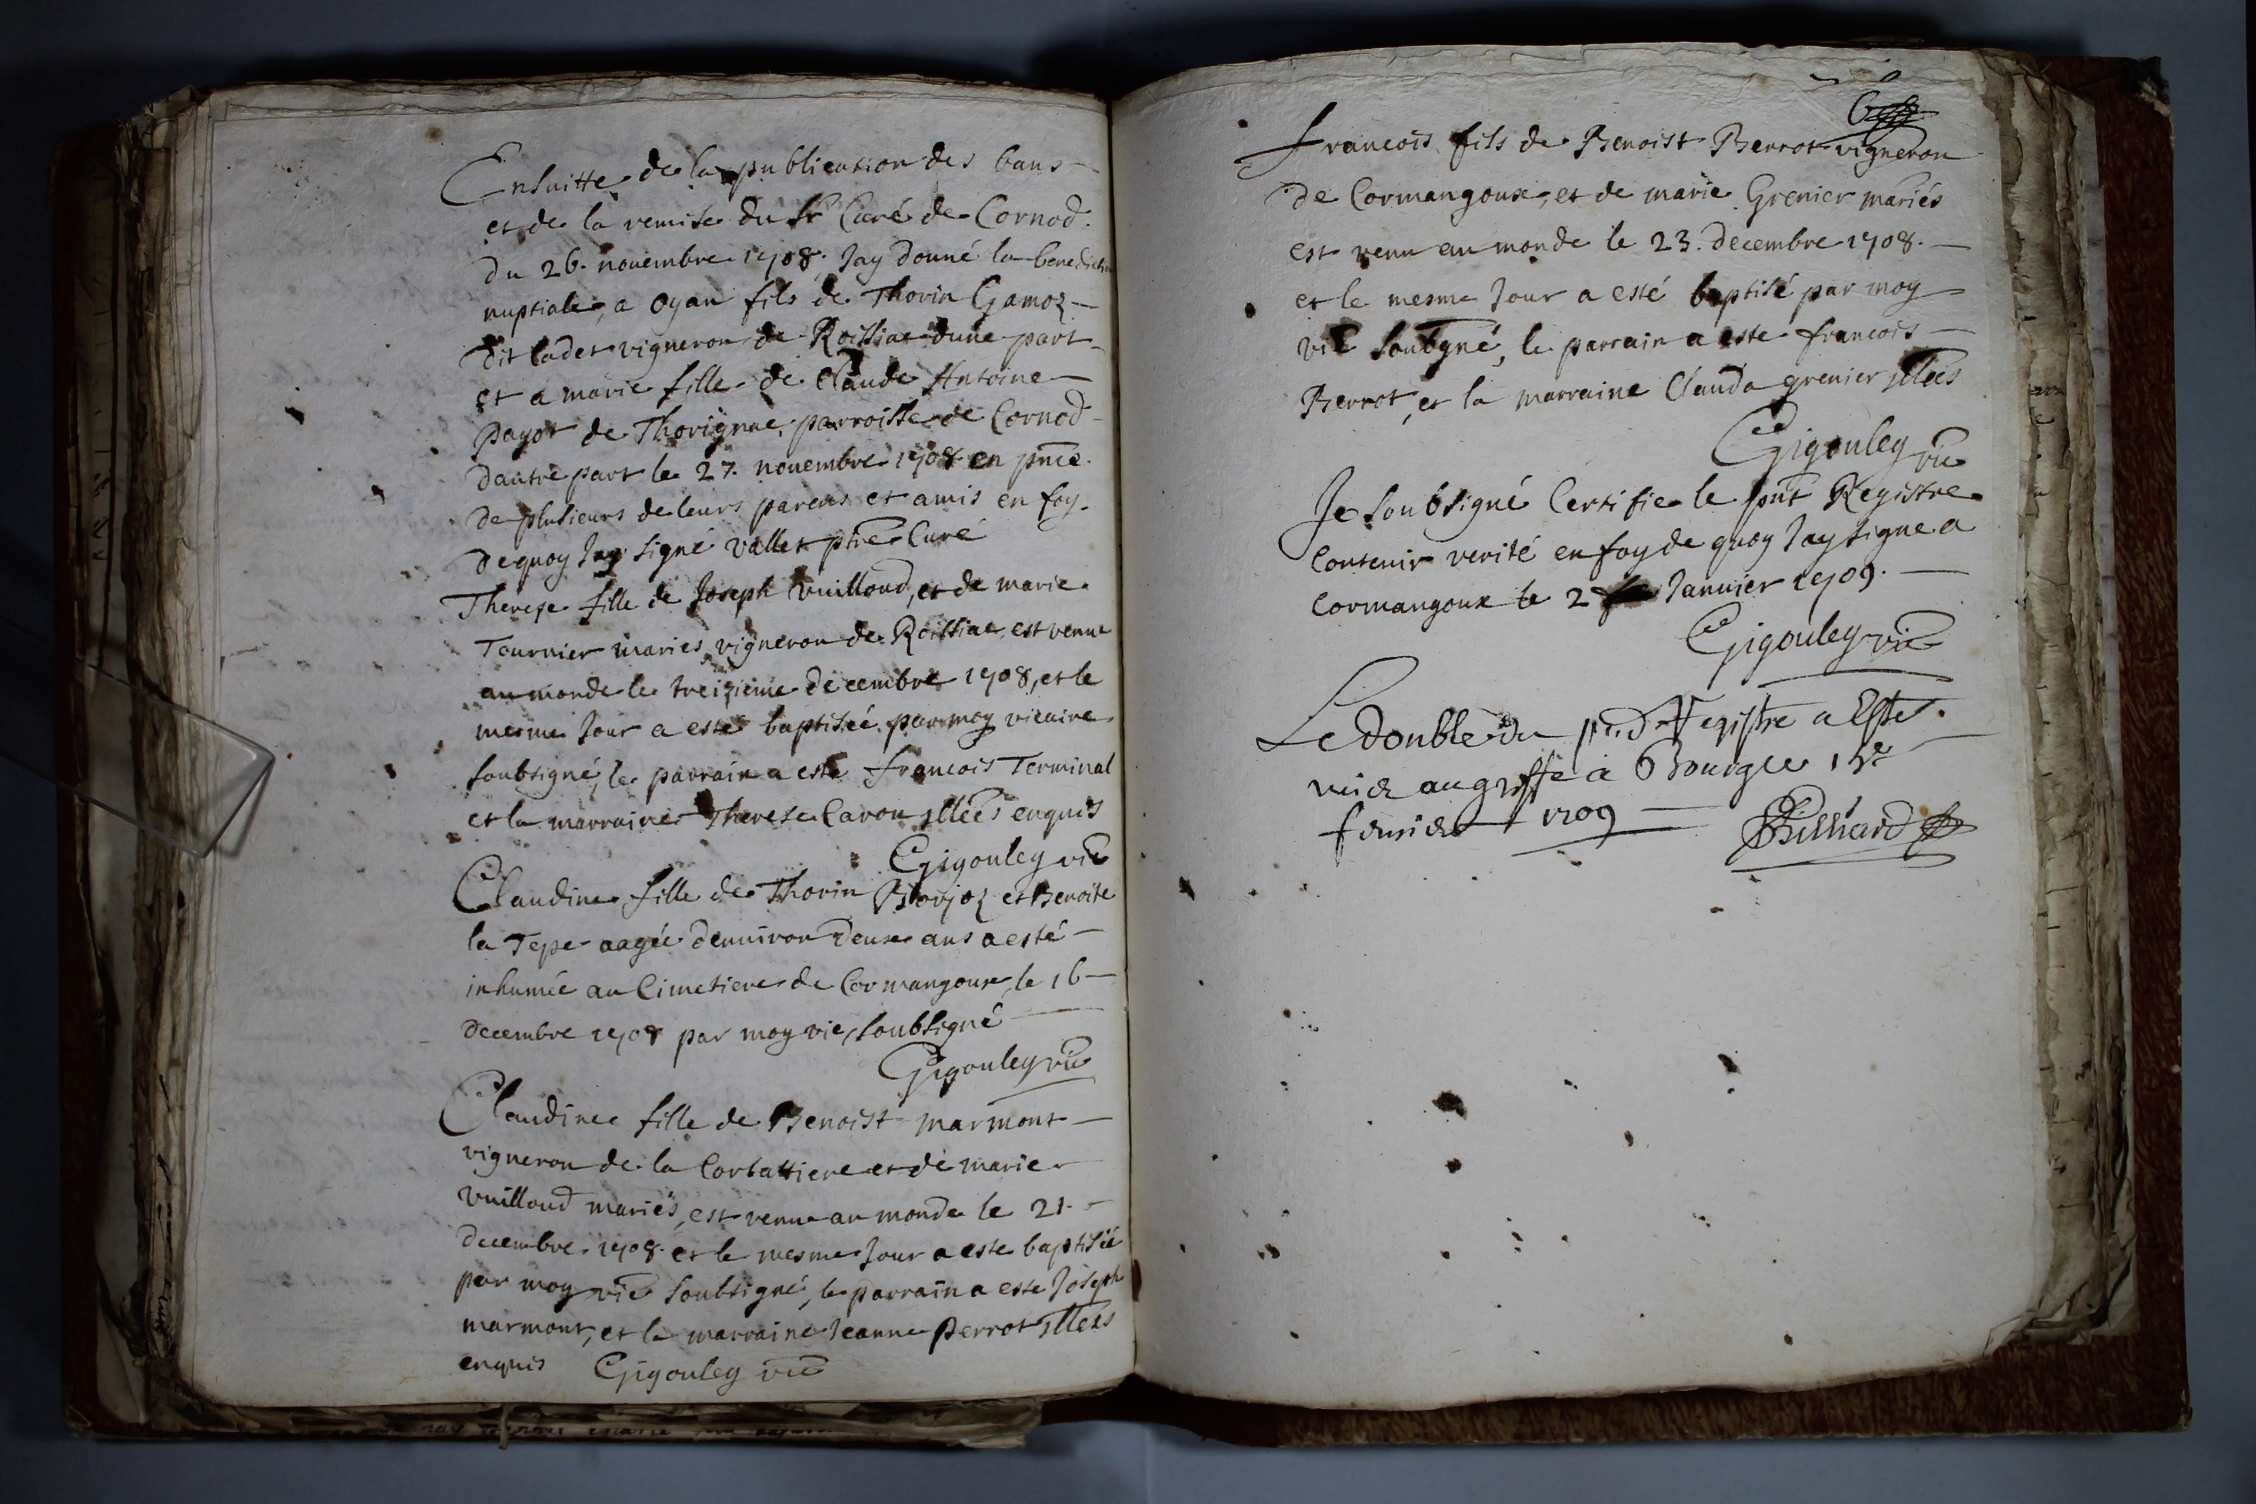 Ensuitte de la publication des bans
et de la remise du Sr Curé de Cornod
du 26. nouembre 1708. Jay donné la benedictio
nuptiale, a Oyan fils de Thorin Gamoz
dit Cadet vigneron de Roissiat dune part
et a marie fille de Claude Antoine
payot de Thorignac, parroisse de Cornod
dautre part le 27. nouembre 1708 en pnce
de plusieurs de leurs parens et amis en foy
dequoy Jay signé vallet ptre Curé
Therese fille de Joseph vuilloud, et de marie
Tournier mariés vigneron de Roissiac est venue
au monde le treizieme decembre 1708, et le
mesme Jour a esté baptisée par moy vicaire
soubsigné, le parrain a esté francois Terminal
et la marraine Therese Caron illées enquis
Gigouley vic
Claudine fille de Thorin Borjoz et Benoite
la Tepe aagée denuiron deux ans a esté
inhumée au Cimetiere de Cormangoux, le 16
decembre 1708 par moy vic, soubsigné
Gigouley vic
Claudine fille de Benoist marmont
vigneron de la Corbattiere et de marie
vuilloud mariés, est venue au monde le 21.
decembre 1708. et le mesme Jour a este baptisée
par moy vic soubsigné, le parrain a este Joseph
marmont, et la marraine Jeanne perrot illees
enquis Gigouley vic
francois fils de Benoist Berrot vigneron
de Cormangoux, et de marie Grenier mariés
est venu au monde le 23. decembre 1708.
et le mesme Jour a esté baptisé par moy
vic soubgné, le parrain a este francois
Berrot, et la marraine Clauda grenier illées
Gigouley vic
Je soubsigné Certifie le pnt Registre
Contenir verité en foy de quoy Jay signe a
Cormangoux le 2 Januier 1709.
Gigouley vic
Le double du pnd Registre a Este
mis au greffe a Bourg le 15e
feurier 1709